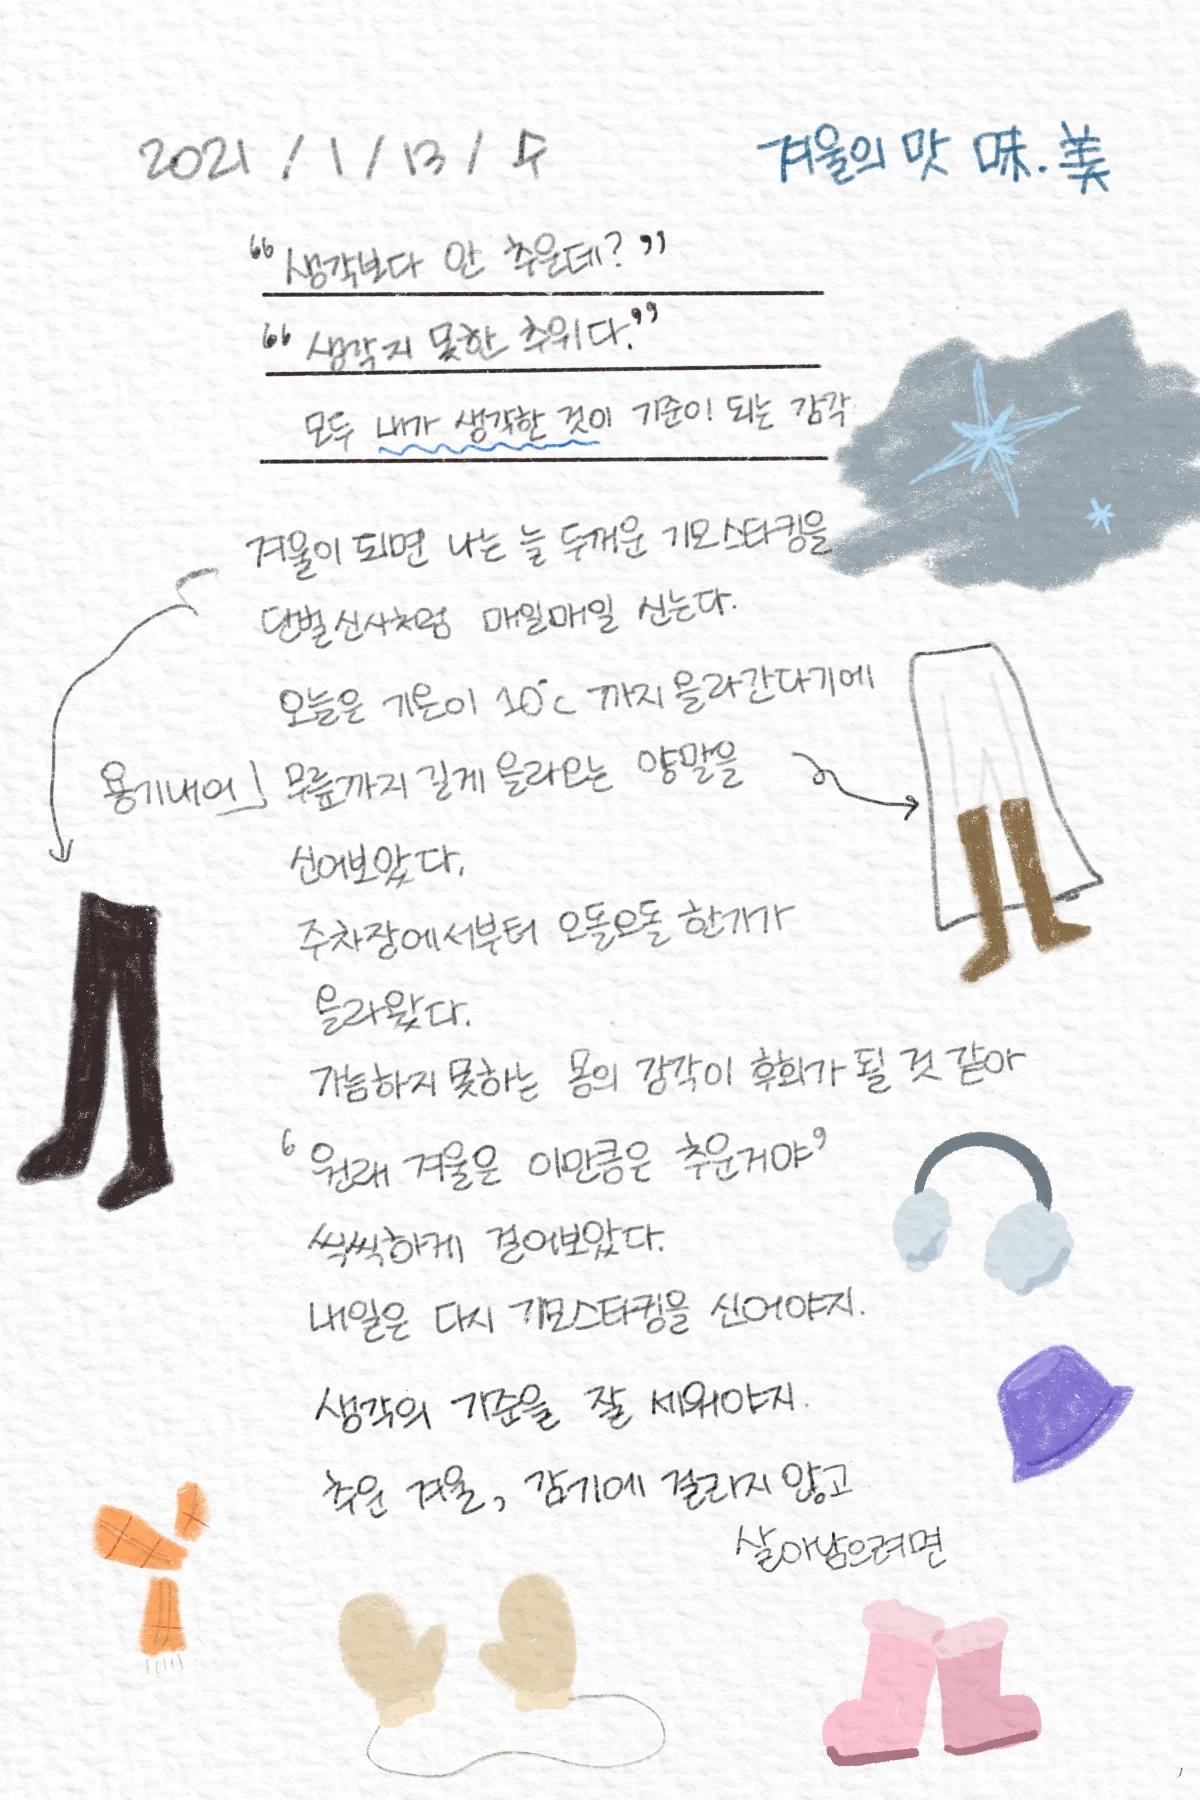 2021 / 1 / 13 / 수
겨울의 맛 味.美
"생각보다 안 추운데?"
"생각지 못한 추위다."
모두 내가 생각한 것이 기준이 되는 감각
겨울이 되면 나는 늘 두꺼운 기모스타킹을
단벌신사처럼 매일매일 신는다.
오늘은 기온이 10℃까지 올라간다기에
용기내어 무릎까지 길게 올라오는 양말을
신어보았다.
주차장에서부터 오돌오돌 한기가
올라왔다.
가늠하지 못하는 몸의 감각이 후회가 될 것 같아
'원래 겨울은 이만큼은 추운거야'
씩씩하게 걸어보았다.
내일은 다시 기모스타킹을 신어야지.
생각의 기준을 잘 세워야지.
추운 겨울, 감기에 걸리지 않고
살아남으려면